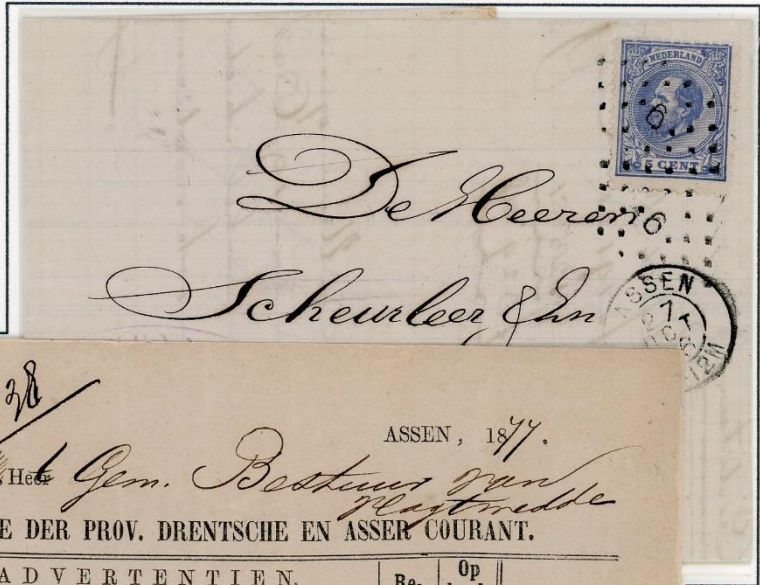 NEDERLAND
6
5 CENT
6
De Heeren
Scheurleer & Zn
ASSEN
7
OCT
12M
38
ASSEN, 1877.
Heer t Gem. Bestuur van
Vlagtwedde
E DER PROV. DRENTSCHE EN ASSER COURANT.
ADVERTENTIEN.
Re-
Op